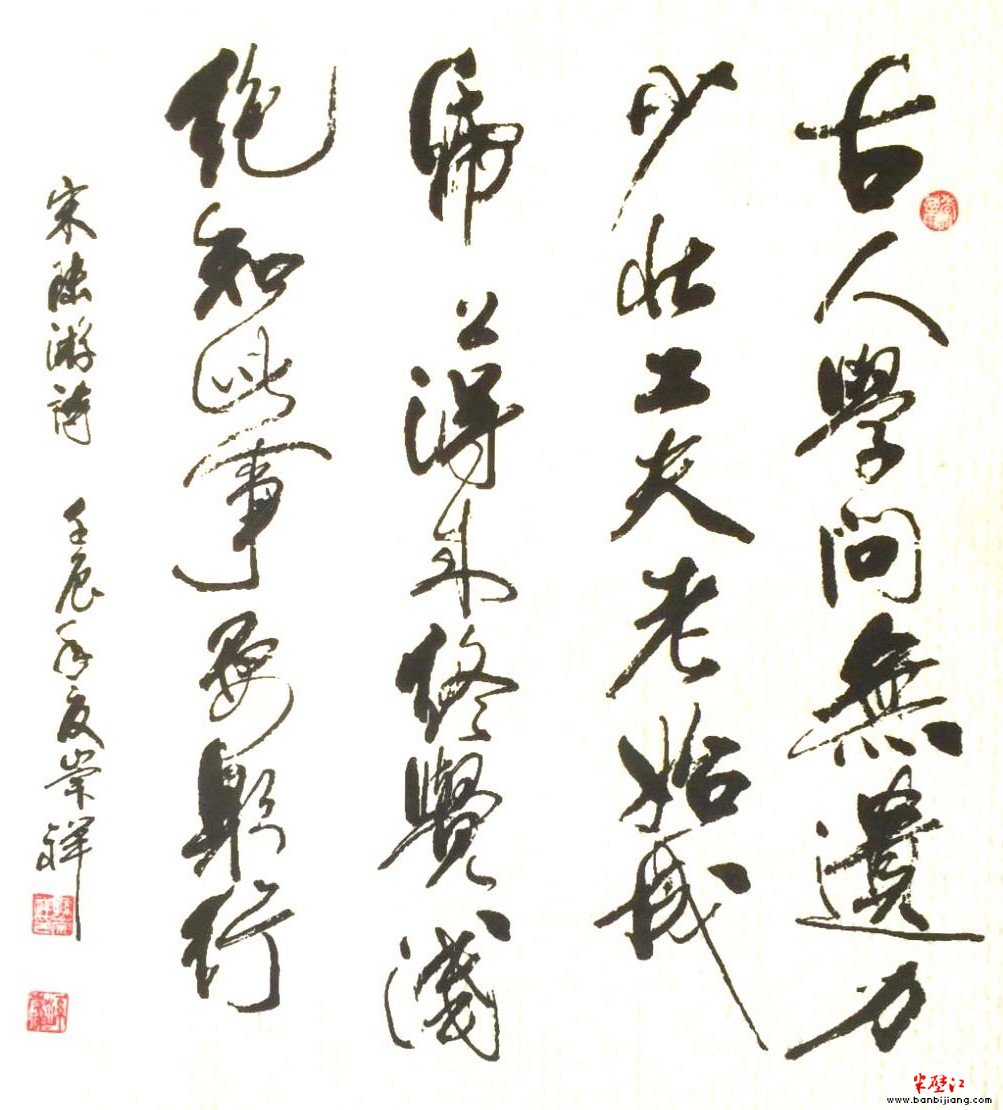 古人學問無遺力
少壯工夫老始成
紙上得来終覺淺
絕知此事要躬行
宋陸游詩 壬辰年夏崇祥
半壁江
www.banbijiang.com